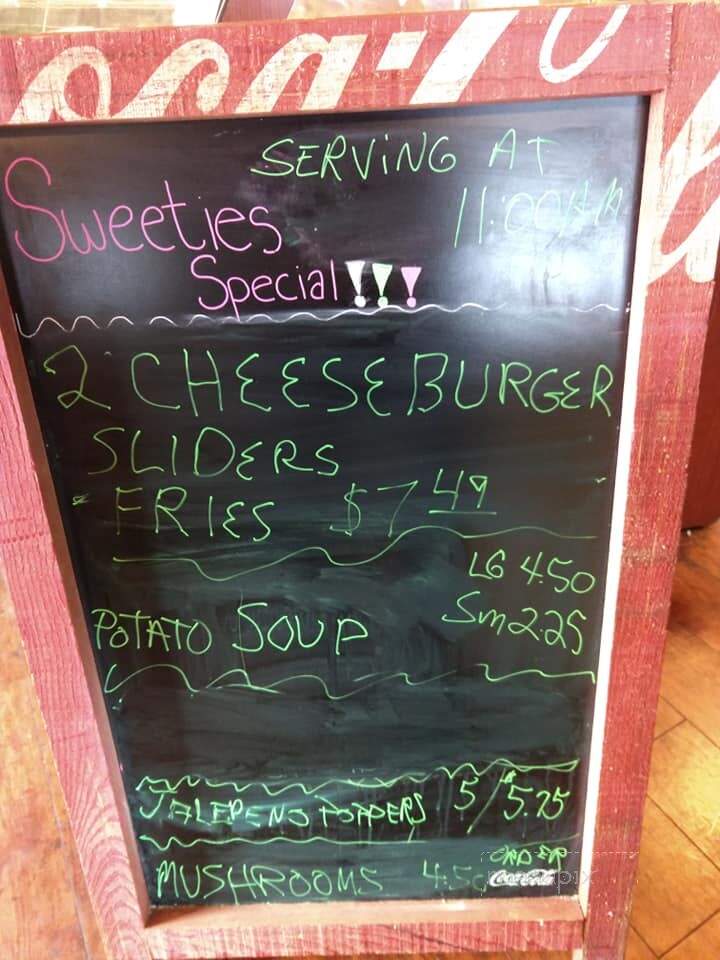 SERVING AT
Sweeties 11:00AM
Special!!!
2 CHEESEBURGER
SLIDERS
FRIES $7 49
LG 4.50
POTATO SOUP Sm 2.25
JALEPENO POPPERS 5/$5.25
MUSHROOMS 4.50 ORDER
Coca-Cola